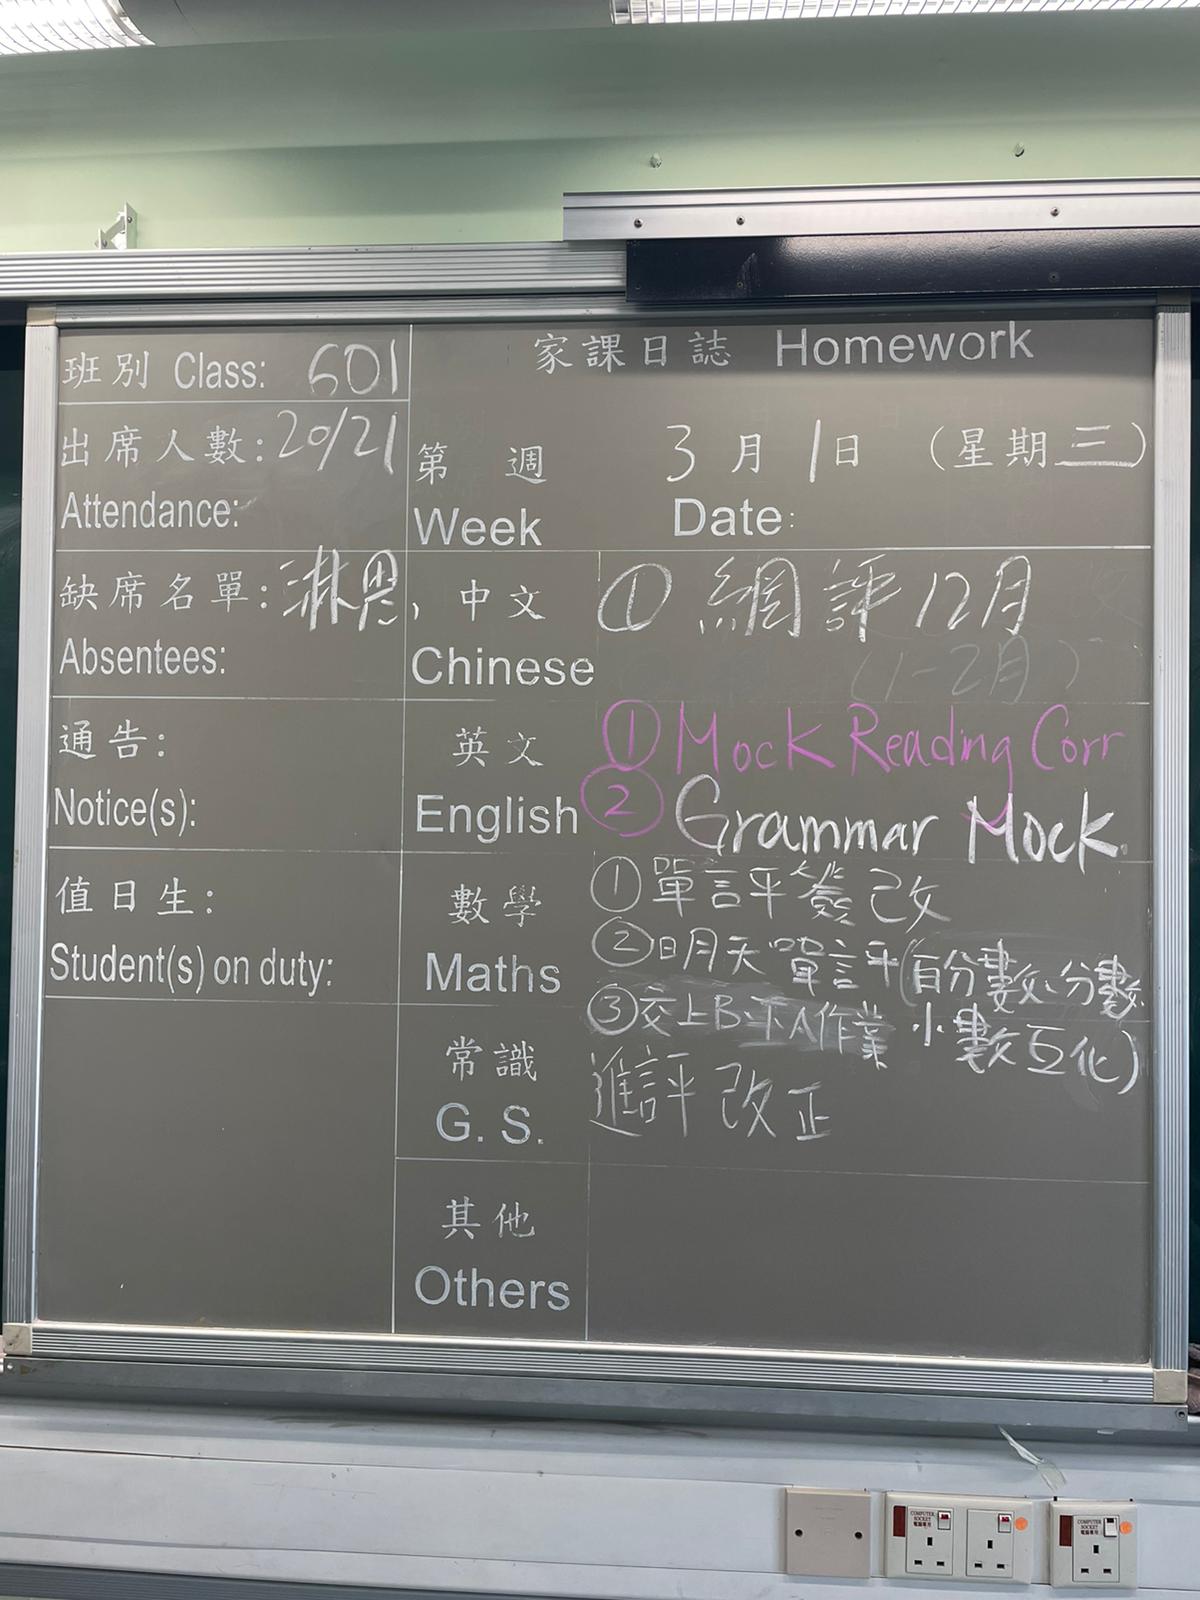 班別 Class: 601
出席人數: 20/21
Attendance:
缺席名單: 淋恩,
Absentees:
通告:
Notice(s):
值日生:
Student(s) on duty:
家課日誌 Homework
第 週 3月1日 (星期三)
Week Date:
中文 ① 網評12月
Chinese (1-2月)
英文 ① Mock Reading Corr
English ② Grammar Mock.
數學 ① 單評簽改
Maths ② 日月天單評(百分數、分數
③ 交上B下A作業 小數互化)
常識 進評改正
G. S.
其他
Others
COMPUTER SOCKET
電腦專用
COMPUTER SOCKET
電腦專用